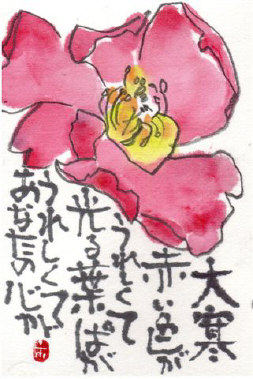 大寒
赤い色が
うれしくて
光る葉っぱが
うれしくて
あなたの心が